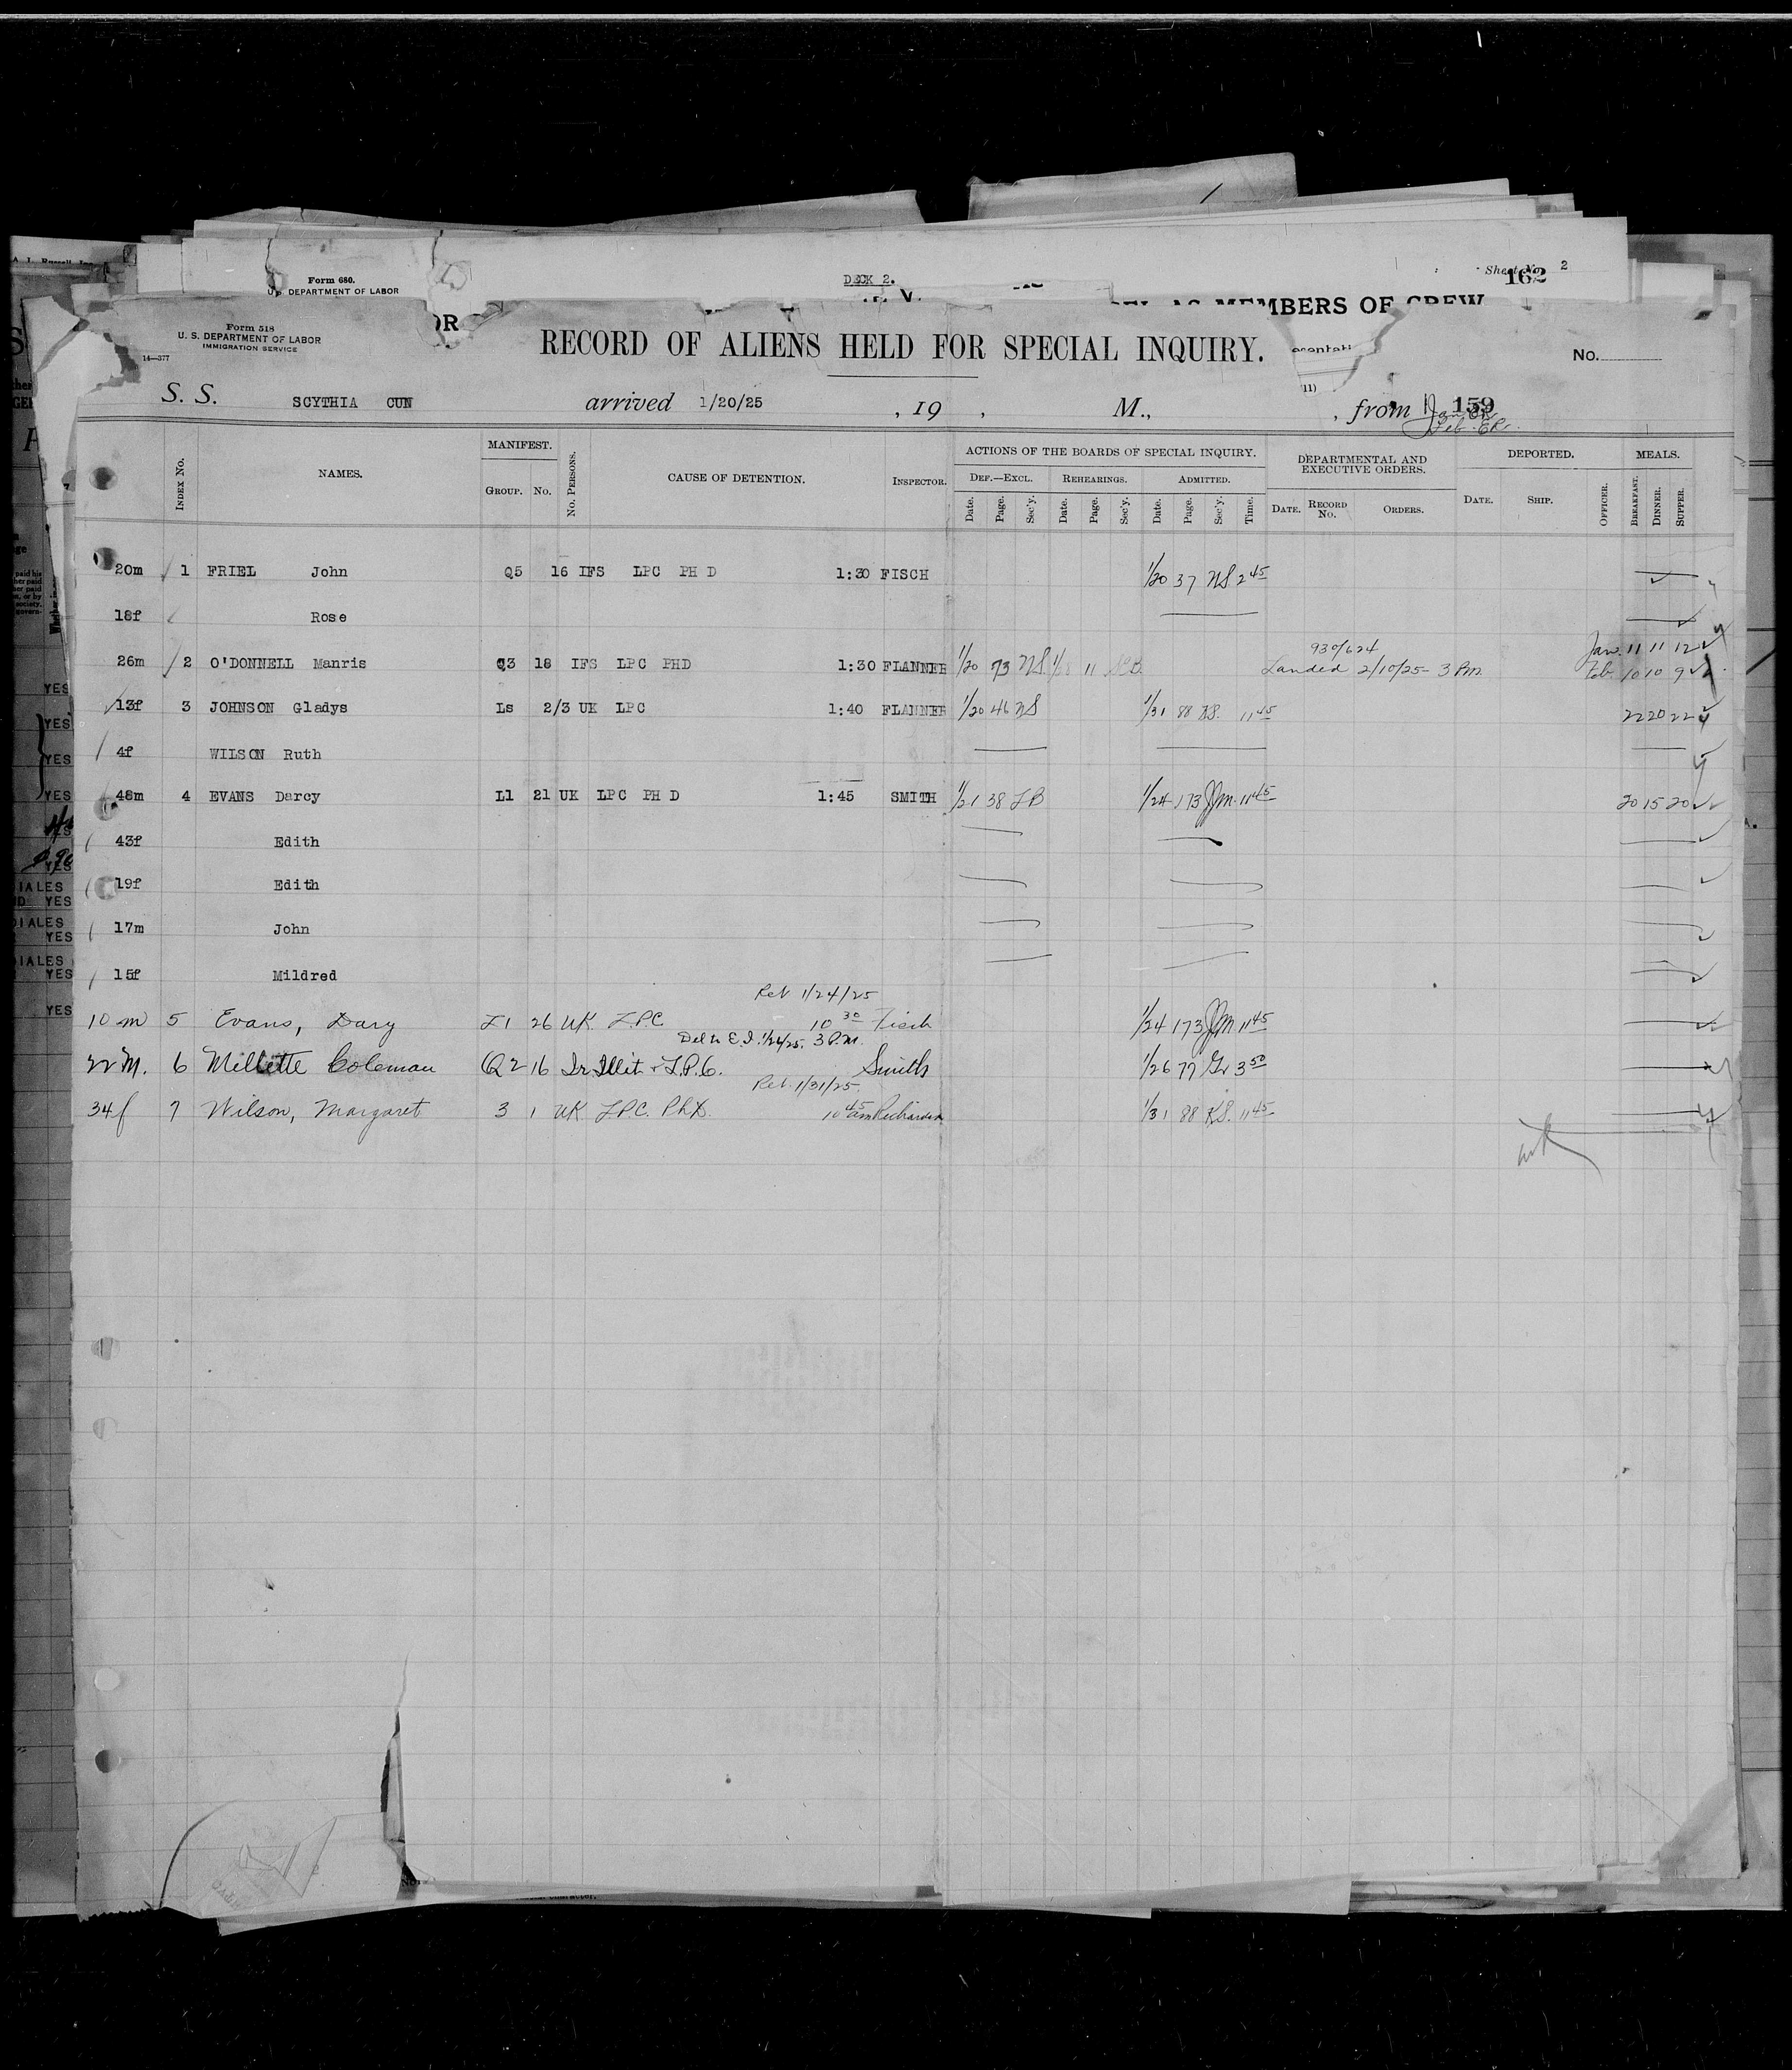 Form 680.
U.S. DEPARTMENT OF LABOR
DECK 2.
Sheet No. 2
162
MBERS OF CREW
Form 518
U. S. DEPARTMENT OF LABOR
IMMIGRATION SERVICE
14—377
RECORD OF ALIENS HELD FOR SPECIAL INQUIRY.
No.
S. S. SCYTHIA CUN arrived 1/20/25 , 19 , M., , from 159
Feb. ER.
INDEX No. NAMES. MANIFEST. GROUP. No. No. PERSONS. CAUSE OF DETENTION. INSPECTOR. ACTIONS OF THE BOARDS OF SPECIAL INQUIRY. DEPARTMENTAL AND EXECUTIVE ORDERS. DEPORTED. MEALS.
DEF.—EXCL. REHEARINGS. ADMITTED.
Date. Page. Sec'y. Date. Page. Sec'y. Date. Page. Sec'y. Time. DATE. RECORD No. ORDERS. DATE. SHIP. OFFICER. BREAKFAST. DINNER. SUPPER.
20m 1 FRIEL John Q5 16 IFS LPC PH D 1:30 FISCH 1/20 37 NS 2 45
18f Rose
26m 2 O'DONNELL Manris Q3 18 IFS LPC PHD 1:30 FLANNER 1/20 73 NS 11 930/624 Jan. 11 11 12
Landed 2/10/25- 3 Pm. Feb. 10 10 9
13f 3 JOHNSON Gladys Ls 2/3 UK LPC 1:40 FLANNER 1/20 46 NS 1/31 88 KS. 11 45 22 20 22
4f WILSON Ruth
48m 4 EVANS Darcy L1 21 UK LPC PH D 1:45 SMITH 1/21 38 LB 1/24 173 JJM. 11 45 20 15 20
43f Edith
19f Edith
17m John
15f Mildred
Ret 1/24/25
10 m 5 Evans, Dary L1 26 UK. LPC 10 30 Fisch 1/24 173 JJM. 11 45
Del to E.I. 1/24/25. 3 P.M.
22 M. 6 Millette Coleman Q2 16 Ir. Illit + L.P.C. Smith 1/26 77 Gr 3 50
Ret. 1/31/25
34f 7 Wilson, Margaret 3 1 UK LPC. PhD. 10 45 am Richardson 1/31 88 KS. 11 45